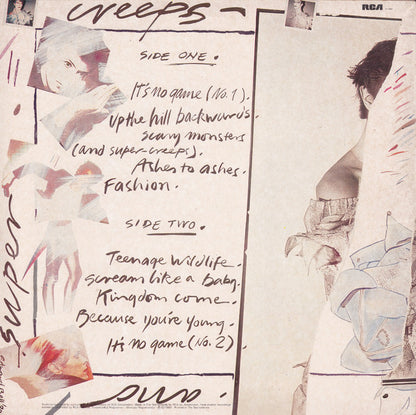 creeps
RCA
SIDE ONE.
It's no game (No. 1).
up the hill backwards.
scary monsters
(and super-creeps).
Ashes to ashes.
Fashion.
super
SIDE TWO.
Teenage wildlife.
scream like a baby.
Kingdom come.
Because you're young.
It's no game (No. 2)
and